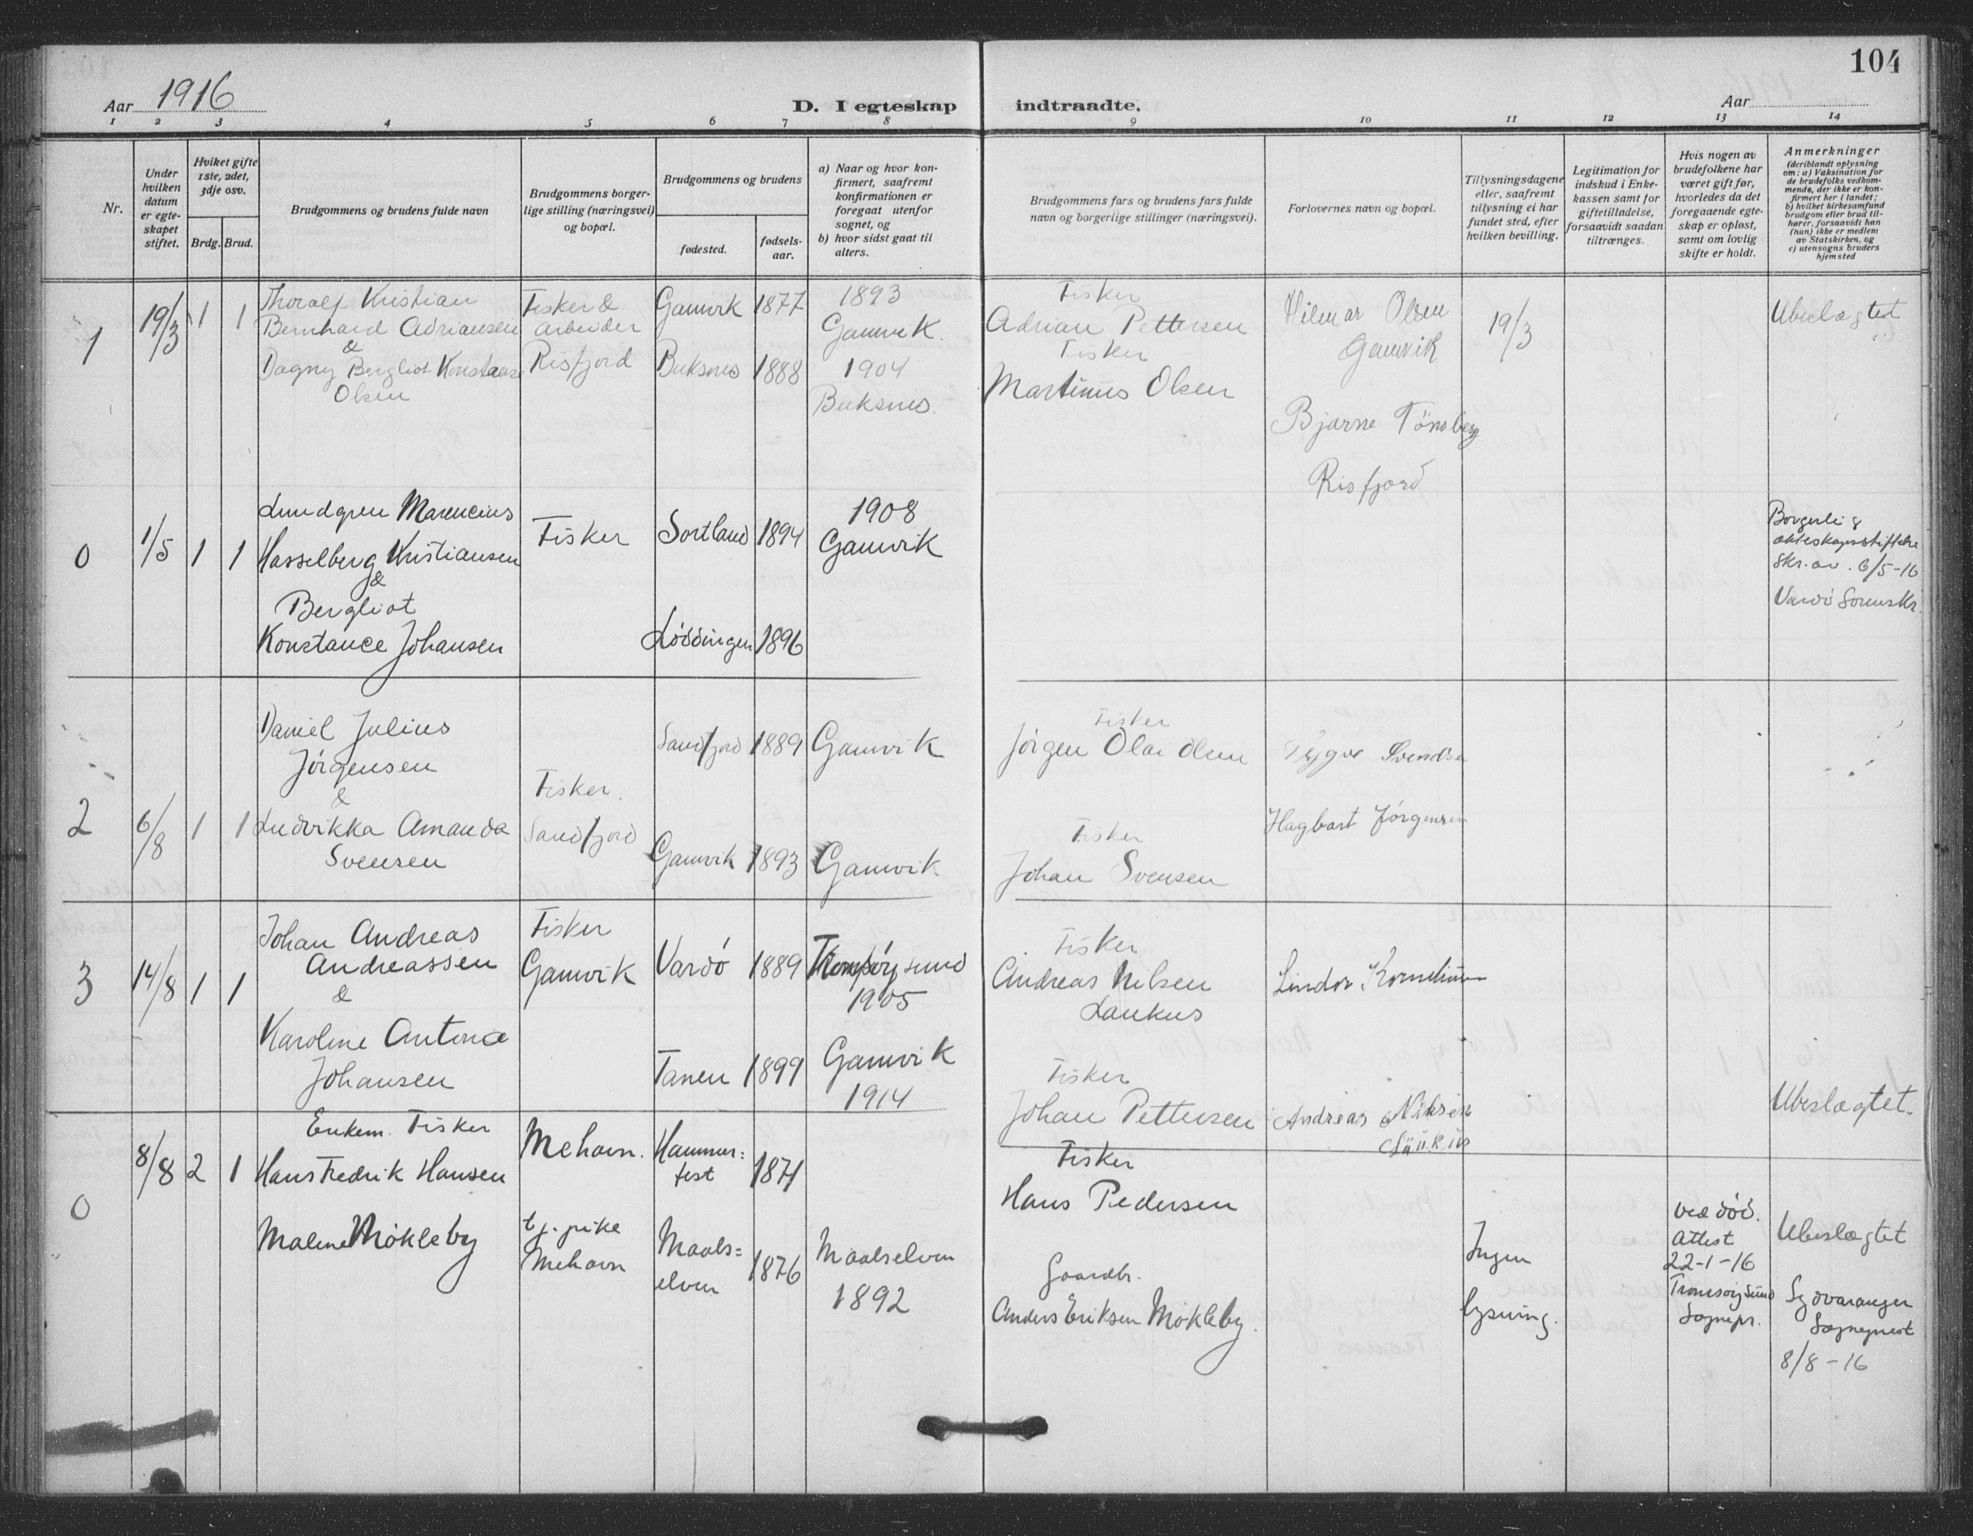 104
Aar 1916
D. I egteskap indtraadte.
Aar
1 2 3 4 5 6 7 8 9 10 11 12 13 14
Nr.
Under hvilken datum er egteskapet stiftet.
Hviket gifte 1ste, 2det, 3dje osv.
Brdg. Brud.
Brudgommens og brudens fulde navn
Brudgommens borgerlige stilling (næringsvei) og bopæl.
Brudgommens og brudens
fødested.
fødselsaar.
a) Naar og hvor konfirmert, saafremt konfirmationen er foregaat utenfor sognet, og
b) hvor sidst gaat til alters.
Brudgommens fars og brudens fars fulde navn og borgerlige stillinger (næringsvei).
Forlovernes navn og bopæl.
Tillysningsdagene eller, saafremt tillysning ei har fundet sted, efter hvilken bevilling.
Legitimation for indskud i Enkekassen samt for giftetilladelse, forsaavidt saadan tiltrænges.
Hvis nogen av brudefolkene har været gift før, hvorledes da det foregaaende egteskap er opløst, samt om lovlig skifte er holdt.
Anmerkninger
(deriblandt oplysning om: a) Vaksination for de brudefolks vedkommende, der ikke er konfirmert her i landet; b) hvilket kirkesamfund brudgom eller brud tilhører, forsaavidt han (hun) ikke er medlem av Statskirken, og c) utensogns bruders hjemsted
1 19/3 1 1
Thoralf Kristian
Bernhard Adriansen
&
Dagny Bergliot Konstanse
Olsen
Fisker &
arbeider
Risfjord
Gamvik 1877
Buksnes 1888
1893
Gamvik.
1904
Buksnes.
Fisker
Adrian Pettersen
Fisker
Martinus Olsen
Hilmar Olsen
Gamvik
Bjarne Tönsberg
Risfjord
19/3
Ubeslægted
0 1/5 1 1
Lundgren Marencius
Hasselberg Kristiansen
&
Bergliot
Konstance Johansen
Fisker
Sortland 1894
Lødingen 1896
1908
Gamvik
Borgerlig
ekteskapsstiftelse
skr. av. 6/5-16
Vardö Sorenskr.
2 6/8 1 1
Daniel Julius
Jörgensen
&
Ludvikka Amanda
Svensen
Fisker.
Sandfjord
Sandfjord 1889
Gamvik 1893
Gamvik
Gamvik
Fisker
Jörgen Olai Olsen
Fisker
Johan Svensen
Svendsen
Hagbart Jörgensen
3 14/8 1 1
Johan Andreas
Andreassen
&
Karoline Antonie
Johansen
Fisker
Gamvik
Vardö 1889
Tanen 1899
Tromsöysund
1905
Gamvik
1914
Fisker
Andreas Nilsen
Laukus
Fisker
Johan Pettersen
Lindor Korneliusen
Andreas Nilsen
Ubeslægtet.
0 8/8 2 1
Enkem. Fisker
Hans Fredrik Hansen
Malene Mökleby
Mehavn.
tj. pike
Mehavn
Hammer=
fest 1871
Maals=
elven 1876
Maalselven
1892
Fisker
Hans Pedersen
Gaardbr.
Anders Eriksen Mökleby.
Ingen
lysning.
ved död.
Attest
22-1-16
Tromsöysund
Sognepr.
Ubeslægtet
Sydvaranger
Sogneprest
8/8-16